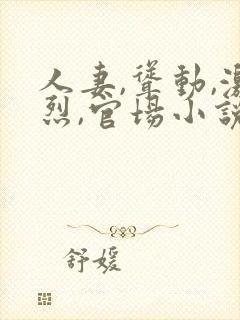 人妻,聳動,激
烈,官場小說
舒媛